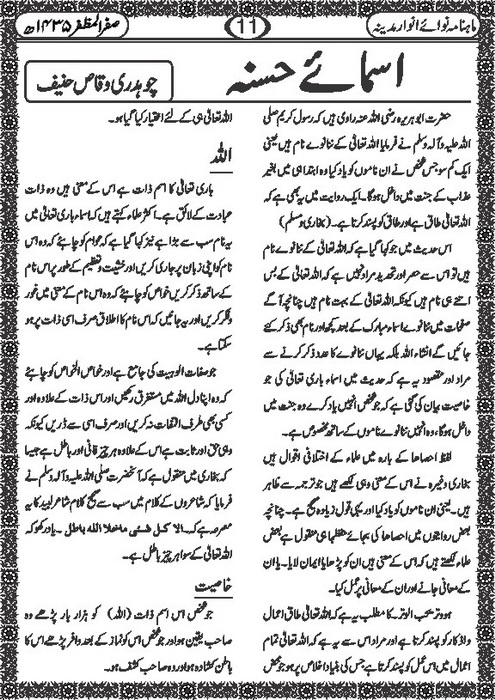 ماہنامہ نوائے انوار مدینہ
11
صفر المظفر ۱۴۳۵ھ
اسمائے حسنہ
چوہدری وقاص حنیف
حضرت ابوہریرہ رضی اللہ عنہ راوی ہیں کہ رسول کریم صلی
اللہ علیہ وآلہ وسلم نے فرمایا اللہ تعالیٰ کے ننانوے نام ہیں یعنی
ایک کم سو جس شخص نے ان ناموں کو یاد کیا وہ ابتداء ہی میں بغیر
عذاب کے جنت میں داخل ہوگا۔ ایک روایت میں یہ بھی ہے کہ
اللہ تعالیٰ طاق ہے اور طاق کو پسند کرتا ہے۔ (بخاری ومسلم)
اس حدیث میں جو کہا گیا ہے کہ اللہ تعالیٰ کے ننانوے نام
ہیں تو اس سے حصر اور تحدید مراد نہیں ہے کہ اللہ تعالیٰ کے بس
اتنے ہی نام ہیں کیونکہ اللہ تعالیٰ کے بہت نام ہیں چنانچہ آگے
صفحات میں ننانوے اسماء مبارک کے بعد کچھ اور نام بھی ذکر کئے
جائیں گے انشاء اللہ بلکہ یہاں ننانوے کا عدد ذکر کرنے سے
مراد اور مقصود یہ ہے کہ حدیث میں اسماء باری تعالیٰ کی جو
خاصیت بیان کی گئی ہے کہ جو شخص انہیں یاد کرے وہ جنت میں
داخل ہوگا۔ وہ انہیں ننانوے ناموں کے ساتھ مخصوص ہے۔
لفظ احصاھا کے بارہ میں علماء کے اختلافی اقوال ہیں
بخاری وغیرہ نے اس کے معنی وہی لکھے ہیں جو ترجمہ سے ظاہر
ہیں۔ یعنی ان ناموں کو یاد کیا اور یہی قول زیادہ صحیح ہے۔ چنانچہ
بعض روایتوں میں احصاھا کی بجائے حفظہا ہی منقول ہے بعض
علماء لکھتے ہیں کہ اس کے معنی ہیں ان کو پڑھا یا ایمان لایا۔ یا ان
کے معانی جانے اور ان کے معانی پر عمل کیا۔
ھو وتر یحب الوتر کا مطلب یہ ہے کہ اللہ تعالیٰ طاق اعمال
و اذکار کو پسند کرتا ہے اور مراد اس سے یہ ہے کہ اللہ تعالیٰ تمام
اعمال میں اس عمل کو پسند کرتا ہے جس کی بنیاد اخلاص پر ہو جو محض
اللہ تعالیٰ ہی کے لئے اختیار کیا گیا ہو۔
اللہ
باری تعالیٰ کا اسم ذات ہے اس کے معنی ہیں وہ ذات
عبادت کے لائق ہے۔ اکثر علماء کہتے ہیں کہ اسماء باری تعالیٰ میں
یہ نام سب سے بڑا ہے نیز کہا گیا ہے کہ عوام کو چاہئے کہ وہ اس
نام کو اپنی زبان پر جاری کریں اور خشیت و تعظیم کے طور پر اس نام
کے ساتھ ذکر کریں خواص کو چاہئے کہ وہ اس نام کے معنی میں غور
و فکر کریں اور یہ جانیں کہ اس نام کا اطلاق صرف اسی ذات پر ہو
سکتا ہے۔
جو صفات الوہیت کی جامع ہے اور خواص الخواص کو چاہئے
کہ وہ اپنا دل اللہ میں مستغرق رکھیں اور اس ذات کے علاوہ اور
کسی بھی طرف التفات نہ کریں اور صرف اسی سے ڈریں کیونکہ
وہی حق اور ثابت ہے اس کے علاوہ ہر چیز فانی اور باطل ہے جیسا
کہ بخاری میں منقول ہے کہ آنحضرت صلی اللہ علیہ وآلہ وسلم نے
فرمایا کہ شاعروں کے کلام میں سب سے صحیح کلام شاعر لبید کا یہ
مصرعہ ہے کہ۔ الا کل شئی ماخلا اللہ باطل۔ یاد رکھو کہ
اللہ تعالیٰ کے سوا ہر چیز باطل ہے۔
خاصیت
جو شخص اس اسم ذات (اللہ) کو ہزار بار پڑھے وہ
صاحب یقین ہو اور جو شخص اس کو نماز کے بعد وافر پڑھے اس کا
باطن کشادہ ہو اور وہ صاحب کشف ہو۔